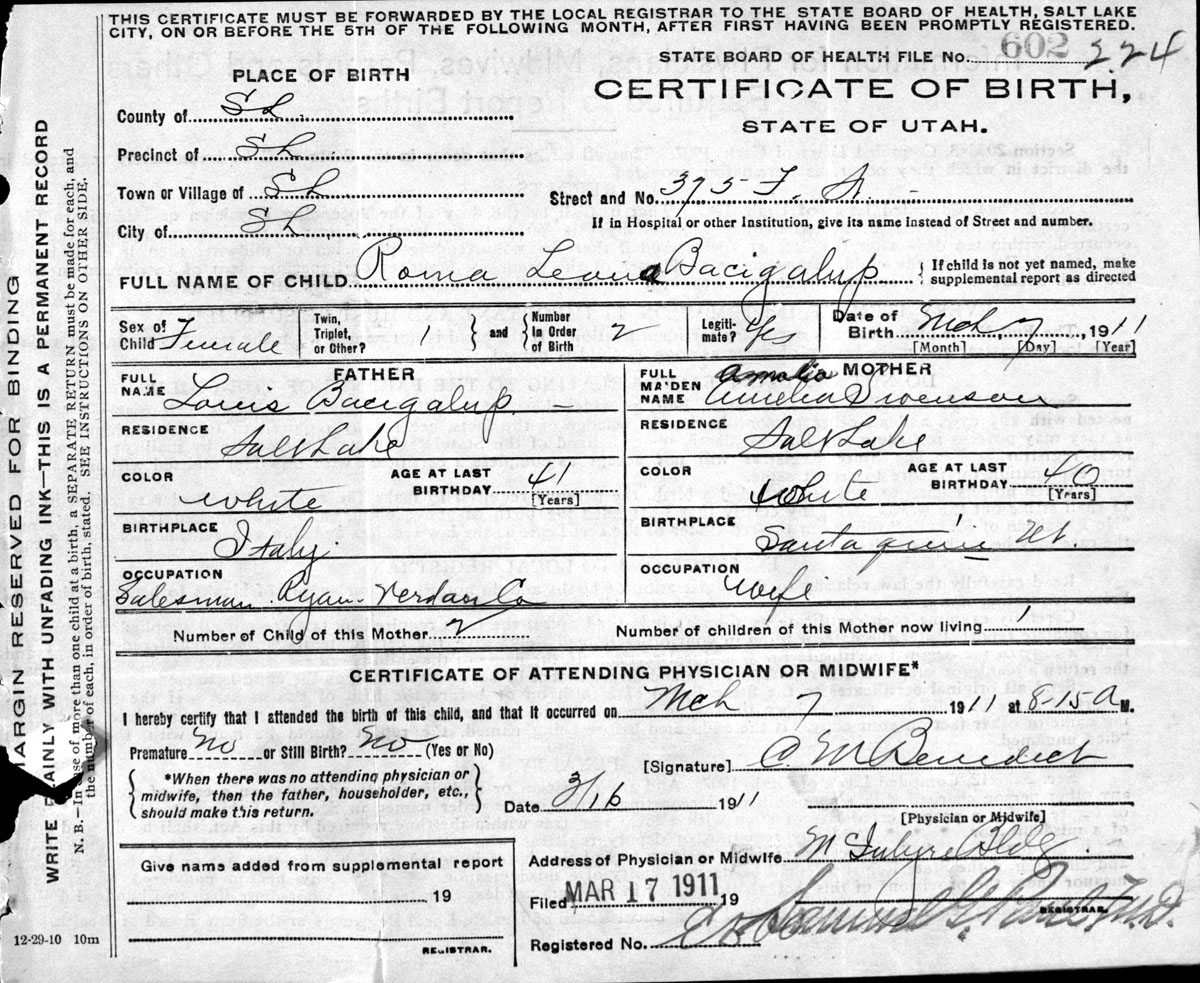 THIS CERTIFICATE MUST BE FORWARDED BY THE LOCAL REGISTRAR TO THE STATE BOARD OF HEALTH, SALT LAKE
CITY, ON OR BEFORE THE 5TH OF THE FOLLOWING MONTH, AFTER FIRST HAVING BEEN PROMPTLY REGISTERED.
STATE BOARD OF HEALTH FILE No. 602 224
PLACE OF BIRTH
CERTIFICATE OF BIRTH,
STATE OF UTAH.
County of SL
Precinct of SL
Town or Village of SL
Street and No. 375 F. St.
City of SL
If in Hospital or other Institution, give its name instead of Street and number.
FULL NAME OF CHILD Roma Leona Bacigalup
If child is not yet named, make
supplemental report as directed
Sex of
Child Female
Twin,
Triplet,
or Other? 1
and
Number
in Order
of Birth 2
Legiti-
mate? Yes
Date of
Birth Mch 7, 1911
[Month] [Day] [Year]
FATHER
FULL
NAME Louis Bacigalup
RESIDENCE Salt Lake
COLOR White
AGE AT LAST
BIRTHDAY 41
[Years]
BIRTHPLACE Italy
OCCUPATION
Salesman Ryan Co
MOTHER
FULL
MAIDEN
NAME Amalia Amelia Swenson
RESIDENCE Salt Lake
COLOR White
AGE AT LAST
BIRTHDAY 40
(Years]
BIRTHPLACE Santaquin Ut.
OCCUPATION Wife
Number of Child of this Mother 2
Number of children of this Mother now living 1
CERTIFICATE OF ATTENDING PHYSICIAN OR MIDWIFE*
I hereby certify that I attended the birth of this child, and that it occurred on Mch 7 1911 at 8-15 a M.
Premature No or Still Birth? No (Yes or No)
[Signature] C M Benedict
*When there was no attending physician or
midwife, then the father, householder, etc.,
should make this return.
Date 3/16 1911
[Physician or Midwife]
Give name added from supplemental report
19
REGISTRAR.
Address of Physician or Midwife McIntyre Bldg
Filed MAR 17 1911 19
REGISTRAR.
Registered No.
12-29-10 10m
MARGIN RESERVED FOR BINDING
WRITE PLAINLY WITH UNFADING INK—THIS IS A PERMANENT RECORD
N. B.—In case of more than one child at a birth, a SEPARATE RETURN must be made for each, and
the number of each, in order of birth, stated. SEE INSTRUCTIONS ON OTHER SIDE.